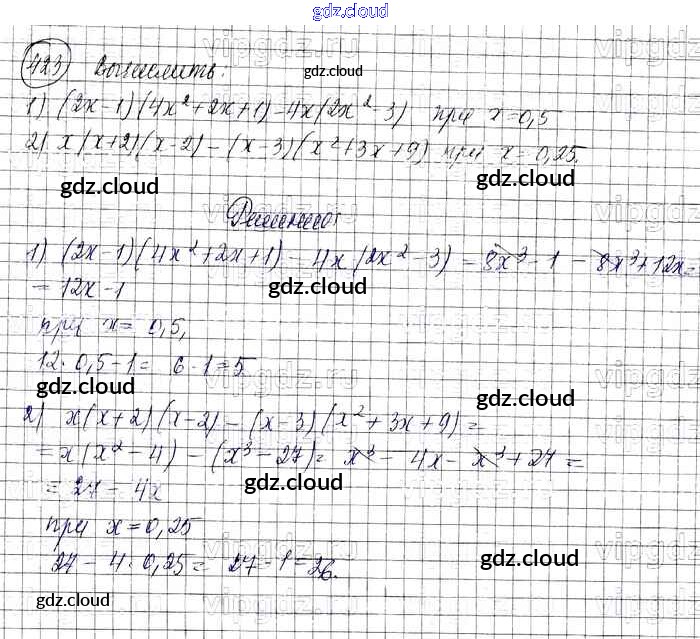 gdz.cloud
423 Вычислить:
gdz.cloud
1) (2x-1)(4x²+2x+1)-4x(2x²-3) при x=0,5
2) x(x+2)(x-2)-(x-3)(x²+3x+9) при x=0,25.
gdz.cloud gdz.cloud
Решение:
1) (2x-1)(4x²+2x+1)-4x(2x²-3)=8x³-1-8x³+12x=
=12x-1
gdz.cloud
при x=0,5,
12·0,5-1=6-1=5
gdz.cloud gdz.cloud
2) x(x+2)(x-2)-(x-3)(x²+3x+9)=
=x(x²-4)-(x³-27)=x³-4x-x³+27=
=27-4x
gdz.cloud
при x=0,25
27-4·0,25=27-1=26.
gdz.cloud
gdz.cloud
vipgdz.ru
vipgdz.ru
vipgdz.ru